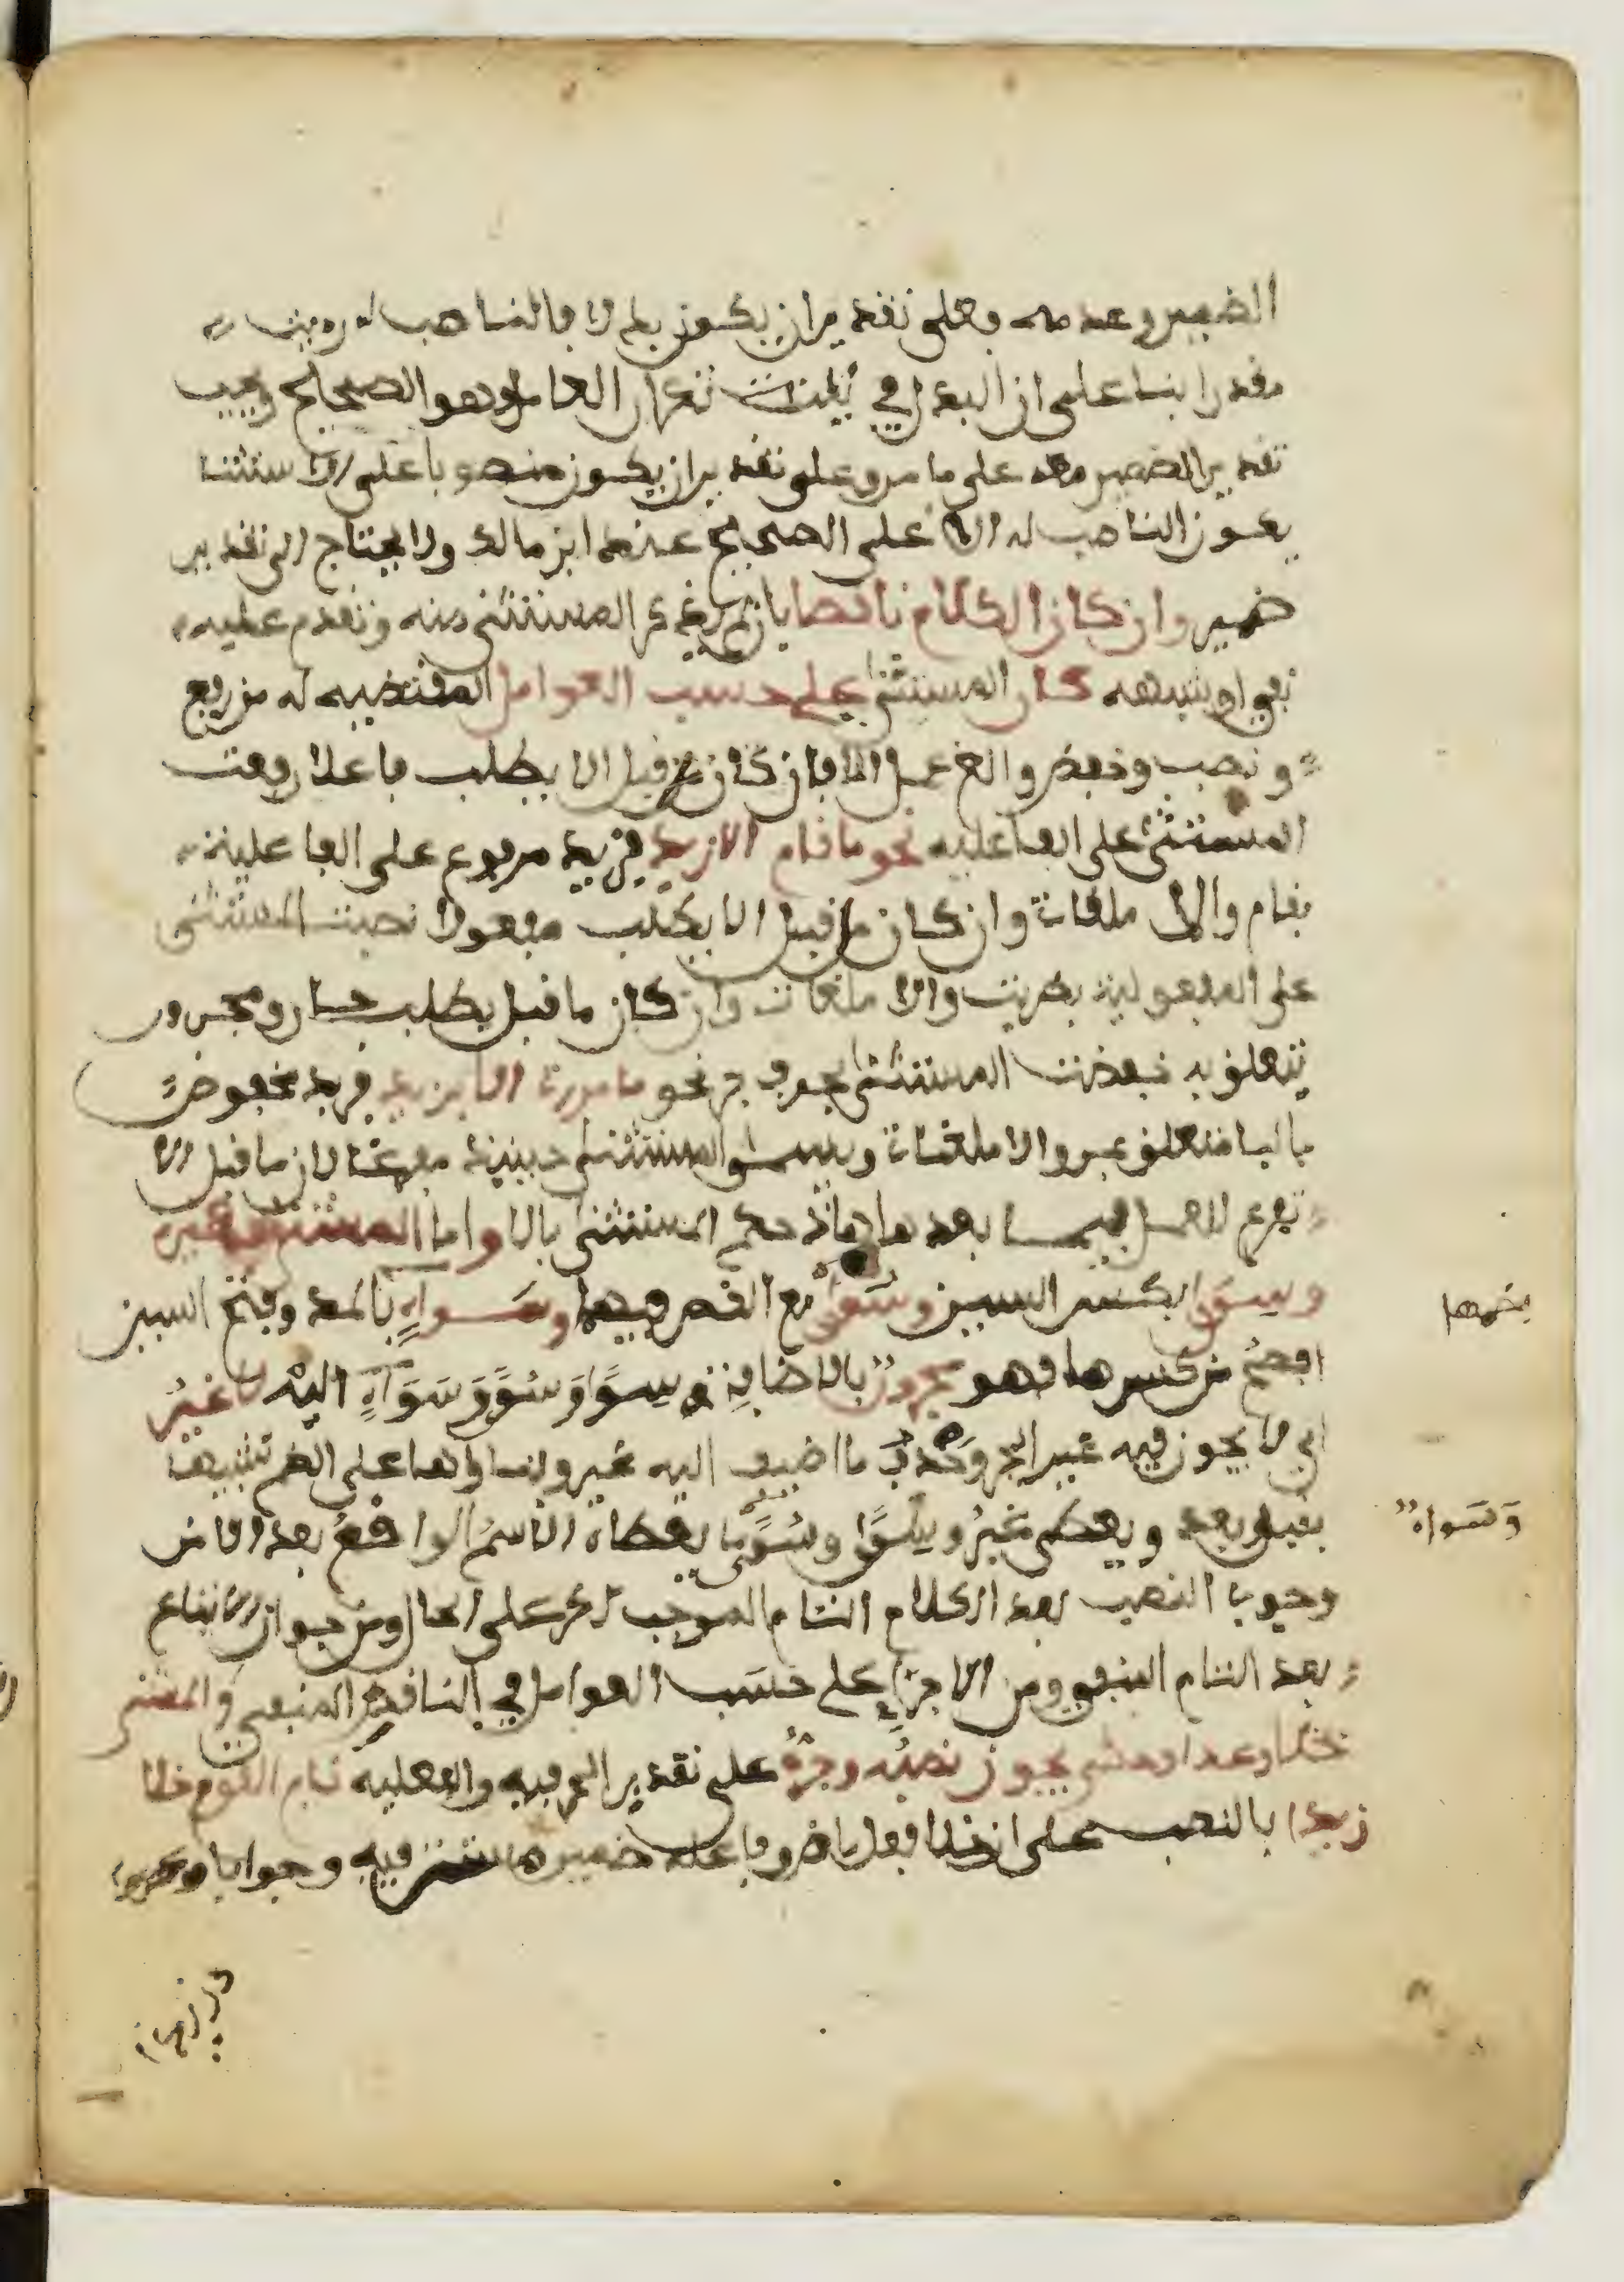 الضمير وعدمه وعلى تقدير ان يكون بدلا فالناصب له
مقدرا بنا على ان البدل في نية تكرار العامل وهو الصحيح ويجب
تقدير الضمير معه على ما مر وعلى تقدير ان يكون منصوبا على الاستثنا
يكون الناصب له الا على الصحيح عند ابن مالك ولا يحتاج الى تقدير
ضمير وان كان الكلام ناقصا بان لم يذكر المستثنى منه وتقدم عليه
نفي او شبهه كان المستثنى على حسب العوامل المقتضيه له من رفع
ونصب وخفض والغ عمل الا فان كان ما قبل الا يطلب فاعلا رفعت
المستثنى على الفاعليه نحو ما قام الا زيد فزيد مرفوع على الفاعلية
بقام والا ملغاة وان كان ما قبل الا يطلب مفعولا نصبت المستثنى
على المفعولية بضربت والا ملغات وان كان ما قبل يطلب جار ومجرور
يتعلق به خفضت المستثنى بحرف جر نحو ما مررت الا بزيد فزيد مخفوض
بالبا متعلق بمر والا ملغاة ويسمى المستثنى حينئذ مفرغا لان ما قبل الا
تفرغ للعمل فيما بعدها هاذ حكم المستثنى بالا واما المستثنى بغير
وسوى بكسر السين وسوى مع القصر فيهما وسواء بالمد وفتح السين
افصح من كسرها فهو مجرور بالاضافة وسوا وسو وسواء اليه لا غير
اي لا يجوز فيه غير الجر وحذف ما اضيف اليه غير وبناؤها على الضم تشبيها
بقبل وبعد ويعطى غير وسوا وسوى ما يعطاه الاسم الواقع بعد الا من
وجوبا النصب بعد الكلام التام الموجب على الحال ومن جواز الاتباع
بعد التام المنفي ومن الاجرا على حسب العوامل في الناقص المنفي والمستثنى
بخلا وعدا وحشى يجوز نصبه وجره على تقدير الحرفيه والفعليه قام القوم خلا
زيدا بالنصب على ان خلا فعل ماض وفاعله ضمير مستتر فيه وجوبا
بضمها
وسواء